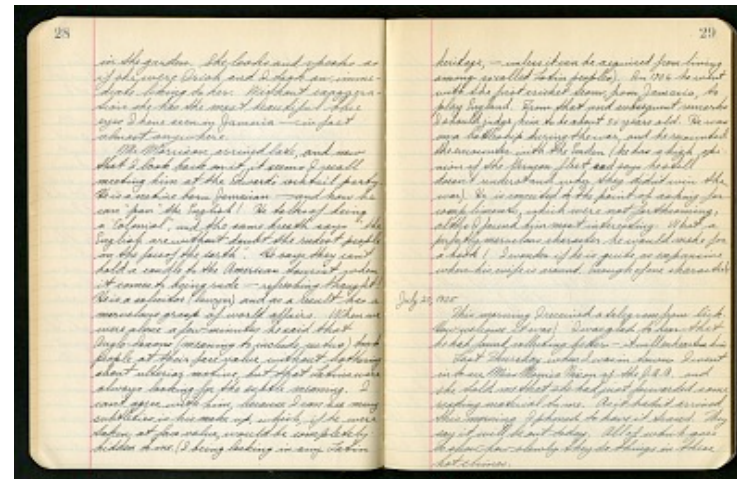 28
in the garden. She looks and speaks as
if she were Irish and I dug an imme-
diate liking to her. Without exaggera-
tion she has the most beautiful blue
eyes I have seen in Jamaica — in fact
almost anywhere.
Mr. Morrison arrived late, and now
that I look back on it, it seems I recall
meeting him at the Edwards cocktail party.
He is a native born Jamaican — and how he
can "pan" the English! He talks of being
a Colonial, and the same breath says "the
English are without doubt the rudest people
on the face of the earth". He says they can't
hold a candle to the American tourist when
it comes to being rude — refreshing thought!
He is a solicitor (lawyer) and as a result has a
marvelous grasp of world affairs. When we
were alone a few minutes he said that
Anglo-Saxons (meaning to include us two) took
people at their face value, without bothering
about ulterior motive, but that Latins were
always looking for the subtle meaning. I
can't agree with him, because I can see many
subtleties in his make up, which, if he were
taken at face value, would be completely
hidden to me. (I being lacking in any Latin
29
heritage, — unless it can be acquired from living
among so called Latin peoples). In 1906 he went
with the first cricket team from Jamaica, to
play England. From that and subsequent remarks
I should judge him to be about 50 years old. He was
on a battleship during the war, and he recounted
the encounter with the Emden (he has a high opi-
nion of the German fleet and says he still
doesn't understand why they didn't win the
war). He is conceited to the point of asking for
compliments, which were not forthcoming,
altho I found him most interesting. What a
perfectly marvelous character he would make for
a book! I wonder if he is quite as expansive
when his wife is around. Enough of one character.
July 20, 1935
This morning I received a telegram from
How welcome it was! I was glad to hear that
he had found
Last Thursday when I was in town I went
in to see Miss Nixon of the J.A.A. and
she told me that she had just forwarded some
reading material to me. As it hadn't arrived
this morning I phoned to have it traced. They
say it will be out today. All of which goes
to show how slowly they do things in these
hot climes.